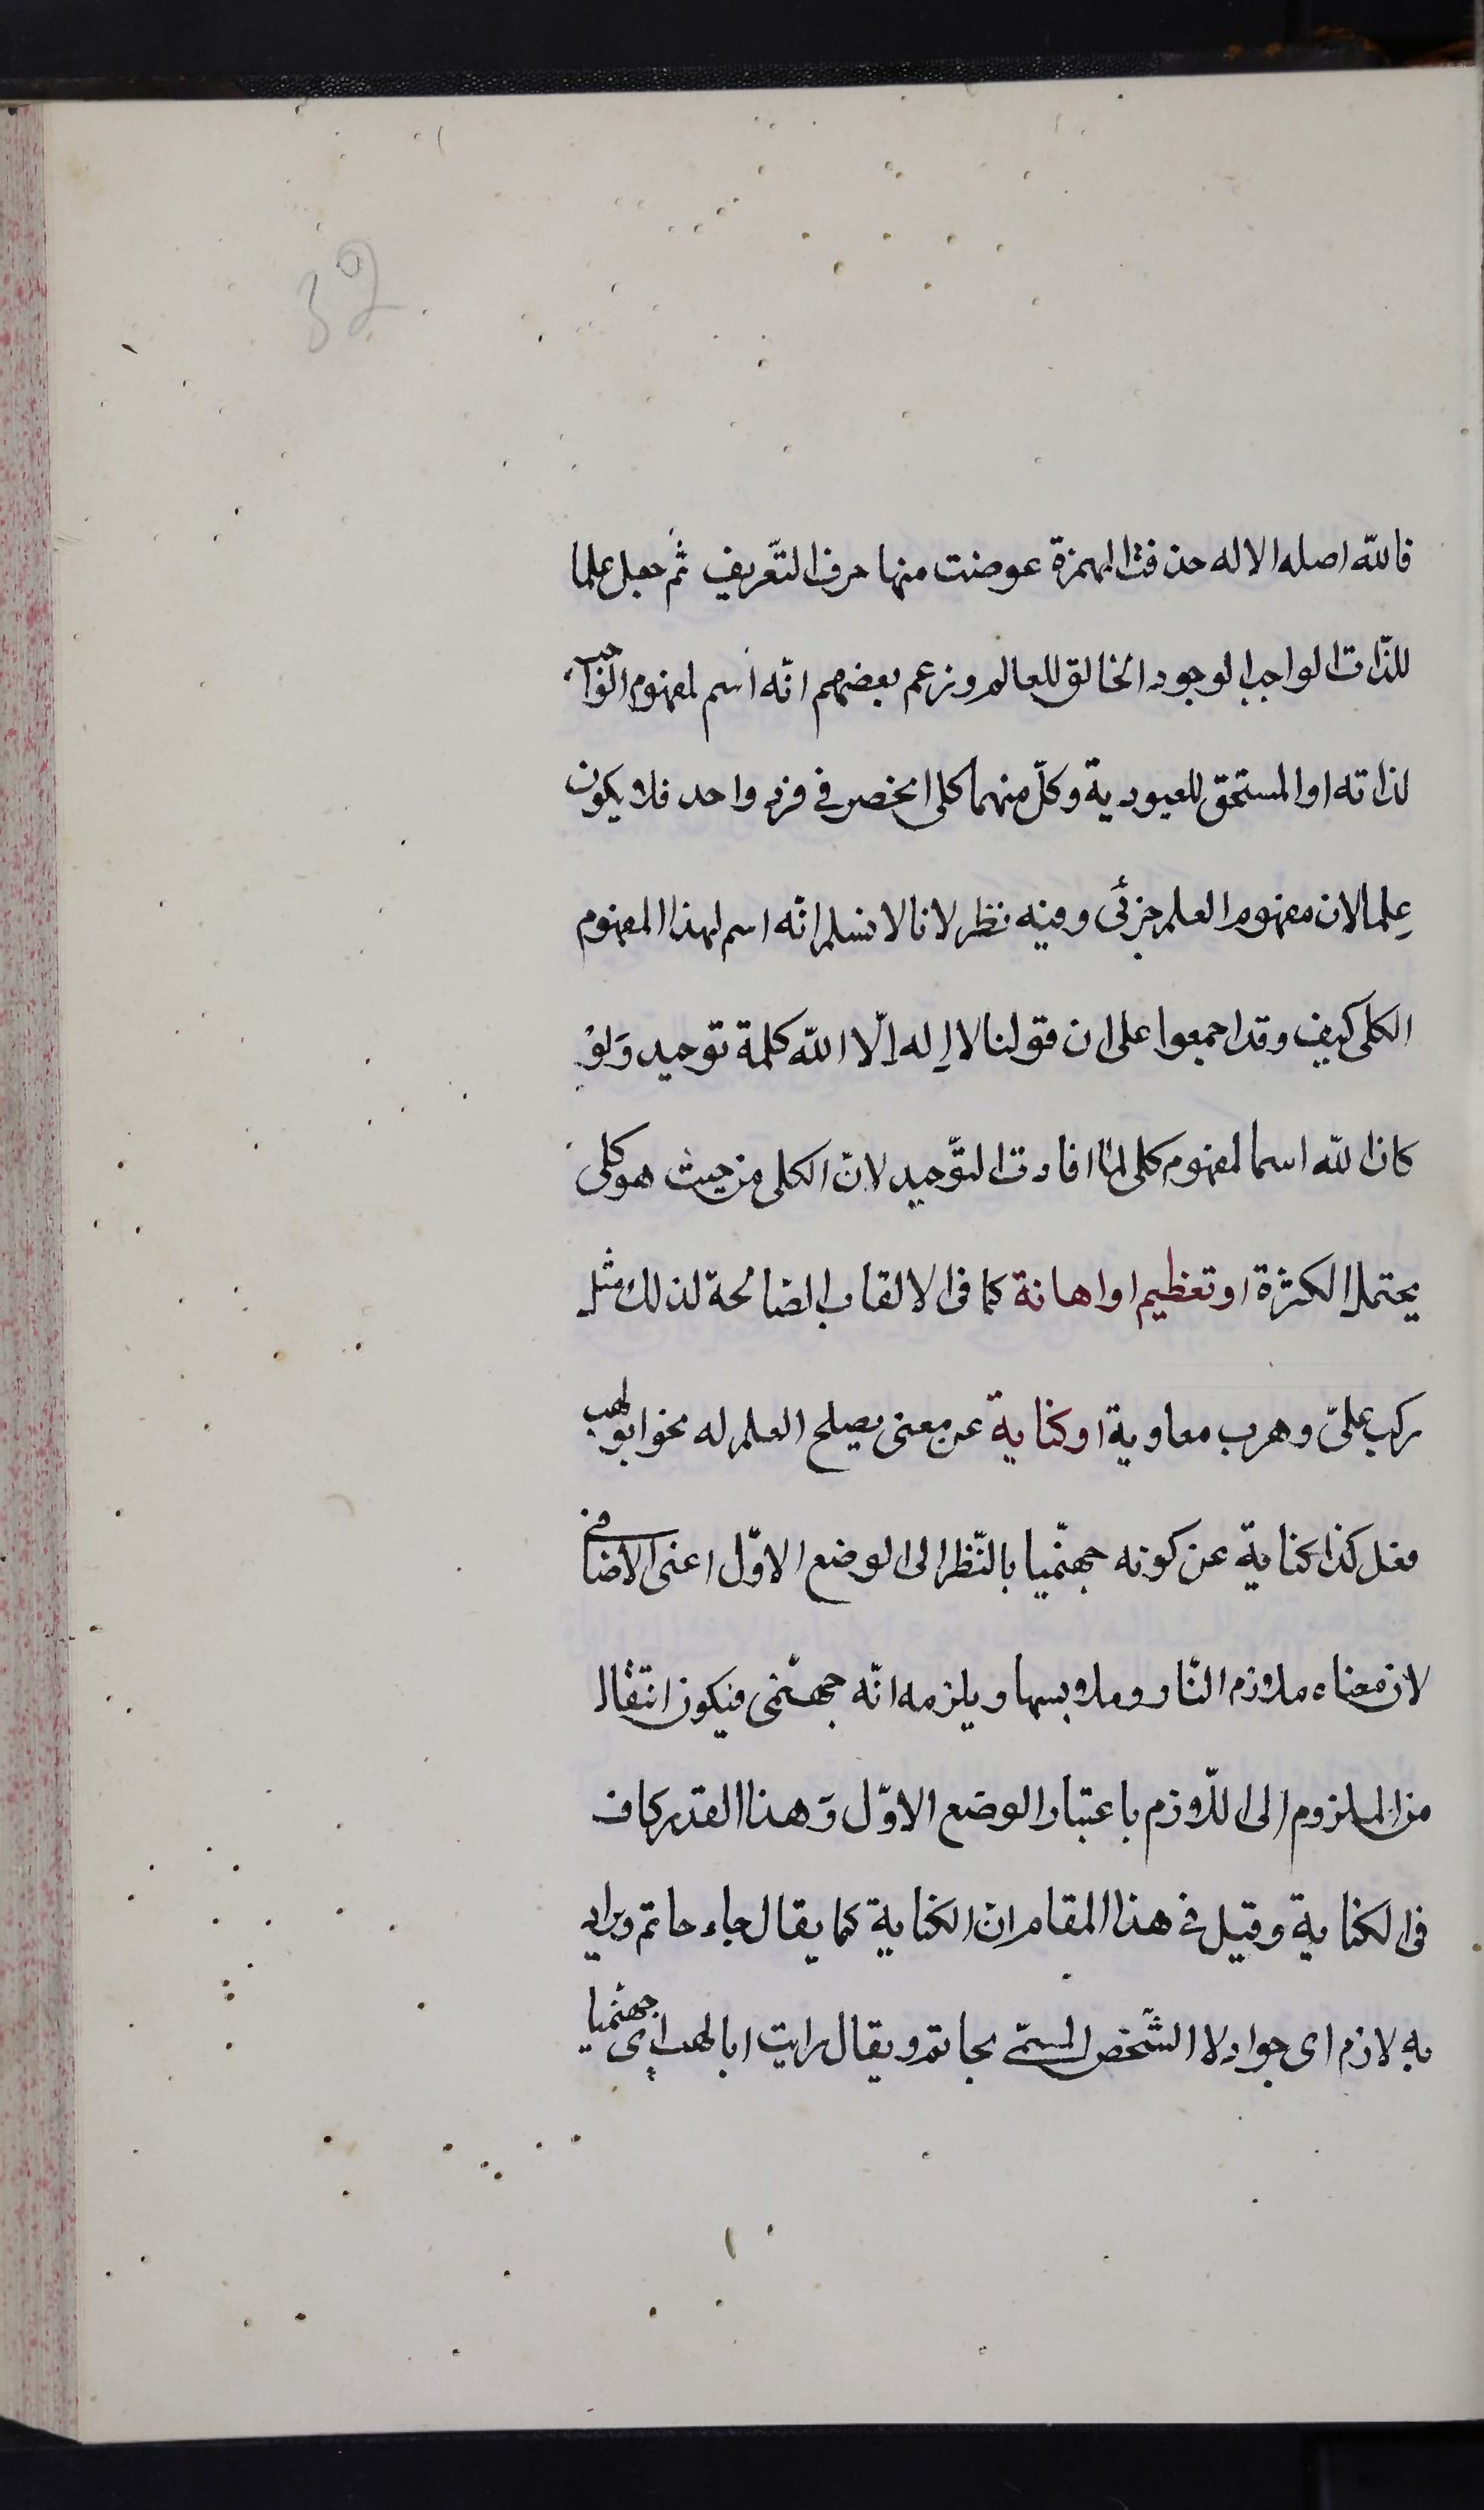 32
فاللّه اصله الاله حذفت الهمزة عوضت منها حرف التّعريف ثم جعل علما
للذّات الواجب الوجود الخالق للعالم وزعم بعضهم انّه اسم لمفهوم الواجب
لذاته او المستحق للعبودية وكلّ منهما كلى انحصر فى فرد واحد فلا يكون
عِلما لان مفهوم العلم جزئى وفيه نظر لانا لا نسلم انّه اسم لهذا المفهوم
الكلى كيف وقد اجمعوا على ان قولنا لا اِله اِلّا اللّه كلمة توحيد وَلَوْ
كان اللّه اسما لمفهوم كلى لما افادت التّوحيد لانّ الكلى من حيث هو كلى
يحتمل الكثرة او تعظيم او اهانة كما فى الالقاب الصالحة لذلك مثل
ركب علىّ وهرب معاوية او كناية عن معنى يصلح العلم له نحو ابو لهب
فعل كذا كناية عن كونه جهنّميا بالنّظر الى الوضع الاوّل اعنى الاضافى
لان معناه ملازم النّار وملابسها ويلزمه انّه جهنّمى فيكون انتقال
من الملزوم الى اللّازم باعتبار الوضع الاوّل وَهذا القدر كاف
فى الكناية وقيل فى هذا المقام انّ الكناية كما يقال جاء حاتم ويراد
به لازم اى جواد لا الشّخص المسمّى بحاتم ويقال رايت ابا لهب اى جهنّميا